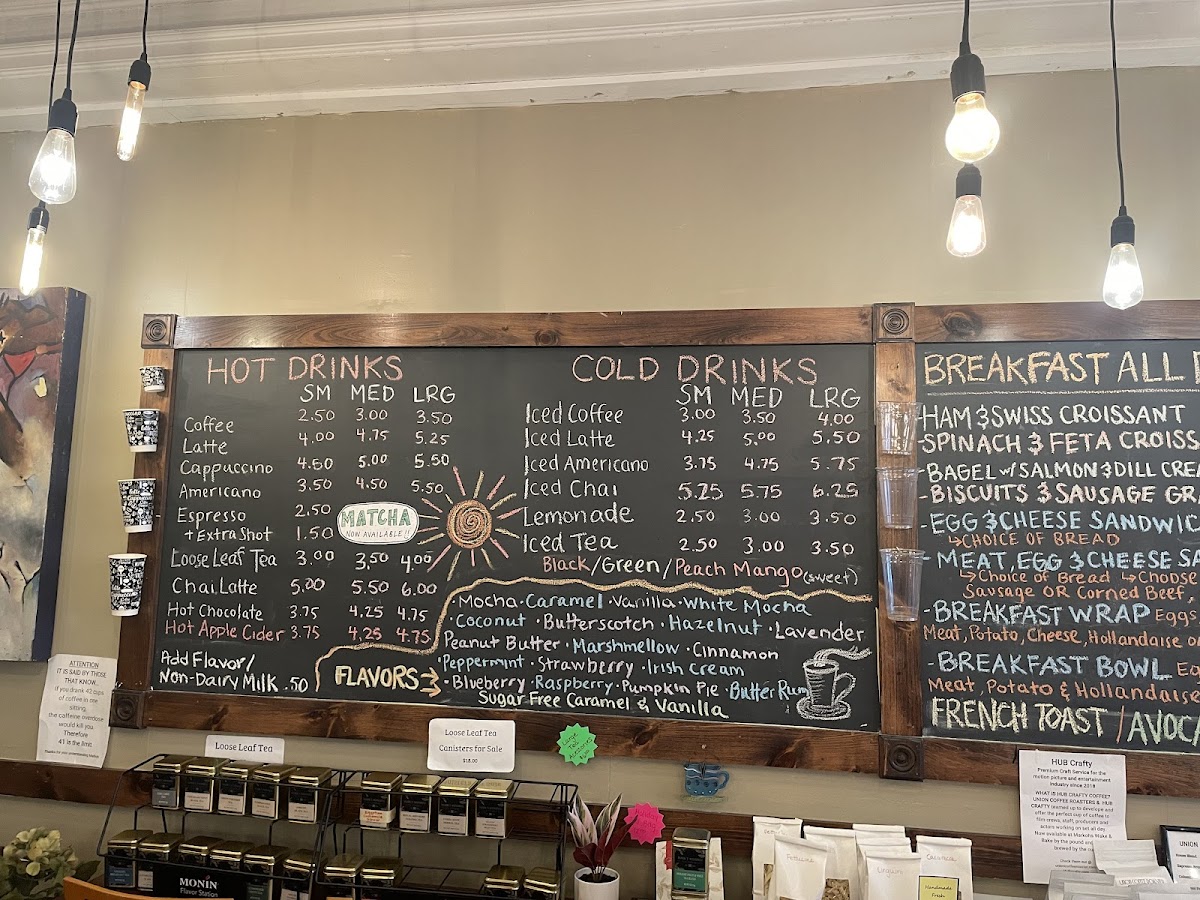 HOT DRINKS
SM MED LRG
Coffee 2.50 3.00 3.50
Latte 4.00 4.75 5.25
Cappuccino 4.50 5.00 5.50
Americano 3.50 4.50 5.50
Espresso 2.50
+ Extra Shot 1.50
Loose Leaf Tea 3.00 3.50 4.00
Chai Latte 5.00 5.50 6.00
Hot Chocolate 3.75 4.25 4.75
Hot Apple Cider 3.75 4.25 4.75
Add Flavor/
Non-Dairy Milk .50
MATCHA
NOW AVAILABLE!!
COLD DRINKS
SM MED LRG
Iced Coffee 3.00 3.50 4.00
Iced Latte 4.25 5.00 5.50
Iced Americano 3.75 4.75 5.75
Iced Chai 5.25 5.75 6.25
Lemonade 2.50 3.00 3.50
Iced Tea 2.50 3.00 3.50
Black/Green/Peach Mango (sweet)
FLAVORS
·Mocha·Caramel·Vanilla·White Mocha
·Coconut ·Butterscotch ·Hazelnut ·Lavender
Peanut Butter ·Marshmellow ·Cinnamon
·Peppermint ·Strawberry ·Irish Cream
·Blueberry ·Raspberry ·Pumpkin Pie ·Butter Rum
Sugar Free Caramel & Vanilla
BREAKFAST ALL
-HAM & SWISS CROISSANT
-SPINACH & FETA CROISS
-BAGEL w/ SALMON & DILL CREA
-BISCUITS & SAUSAGE GR
-EGG & CHEESE SANDWIC
CHOICE OF BREAD
-MEAT, EGG & CHEESE SA
Choice of Bread Choose
Sausage OR Corned Beef,
-BREAKFAST WRAP Eggs
Meat, Potato, Cheese, Hollandaise
-BREAKFAST BOWL
Meat, Potato & Hollandaise
FRENCH TOAST / AVOCA
ATTENTION
IT IS SAID BY THOSE
THAT KNOW,
if you drink 42 cups
of coffee in one
sitting,
the caffeine overdose
would kill you.
Therefore
41 is the limit
Loose Leaf Tea
Loose Leaf Tea
Canisters for Sale
$18.00
MONIN
Flavor Station
HUB Crafty
Premium Craft Service for the
motion picture and entertainment
industry since 2018
WHAT IS HUB CRAFTY COFFEE?
UNION COFFEE ROASTERS & HUB
CRAFTY teamed up to develope and
offer the perfect cup of coffee to
film crews, staff, producers and
actors working on set all day.
UNION
Handmade
Fresh